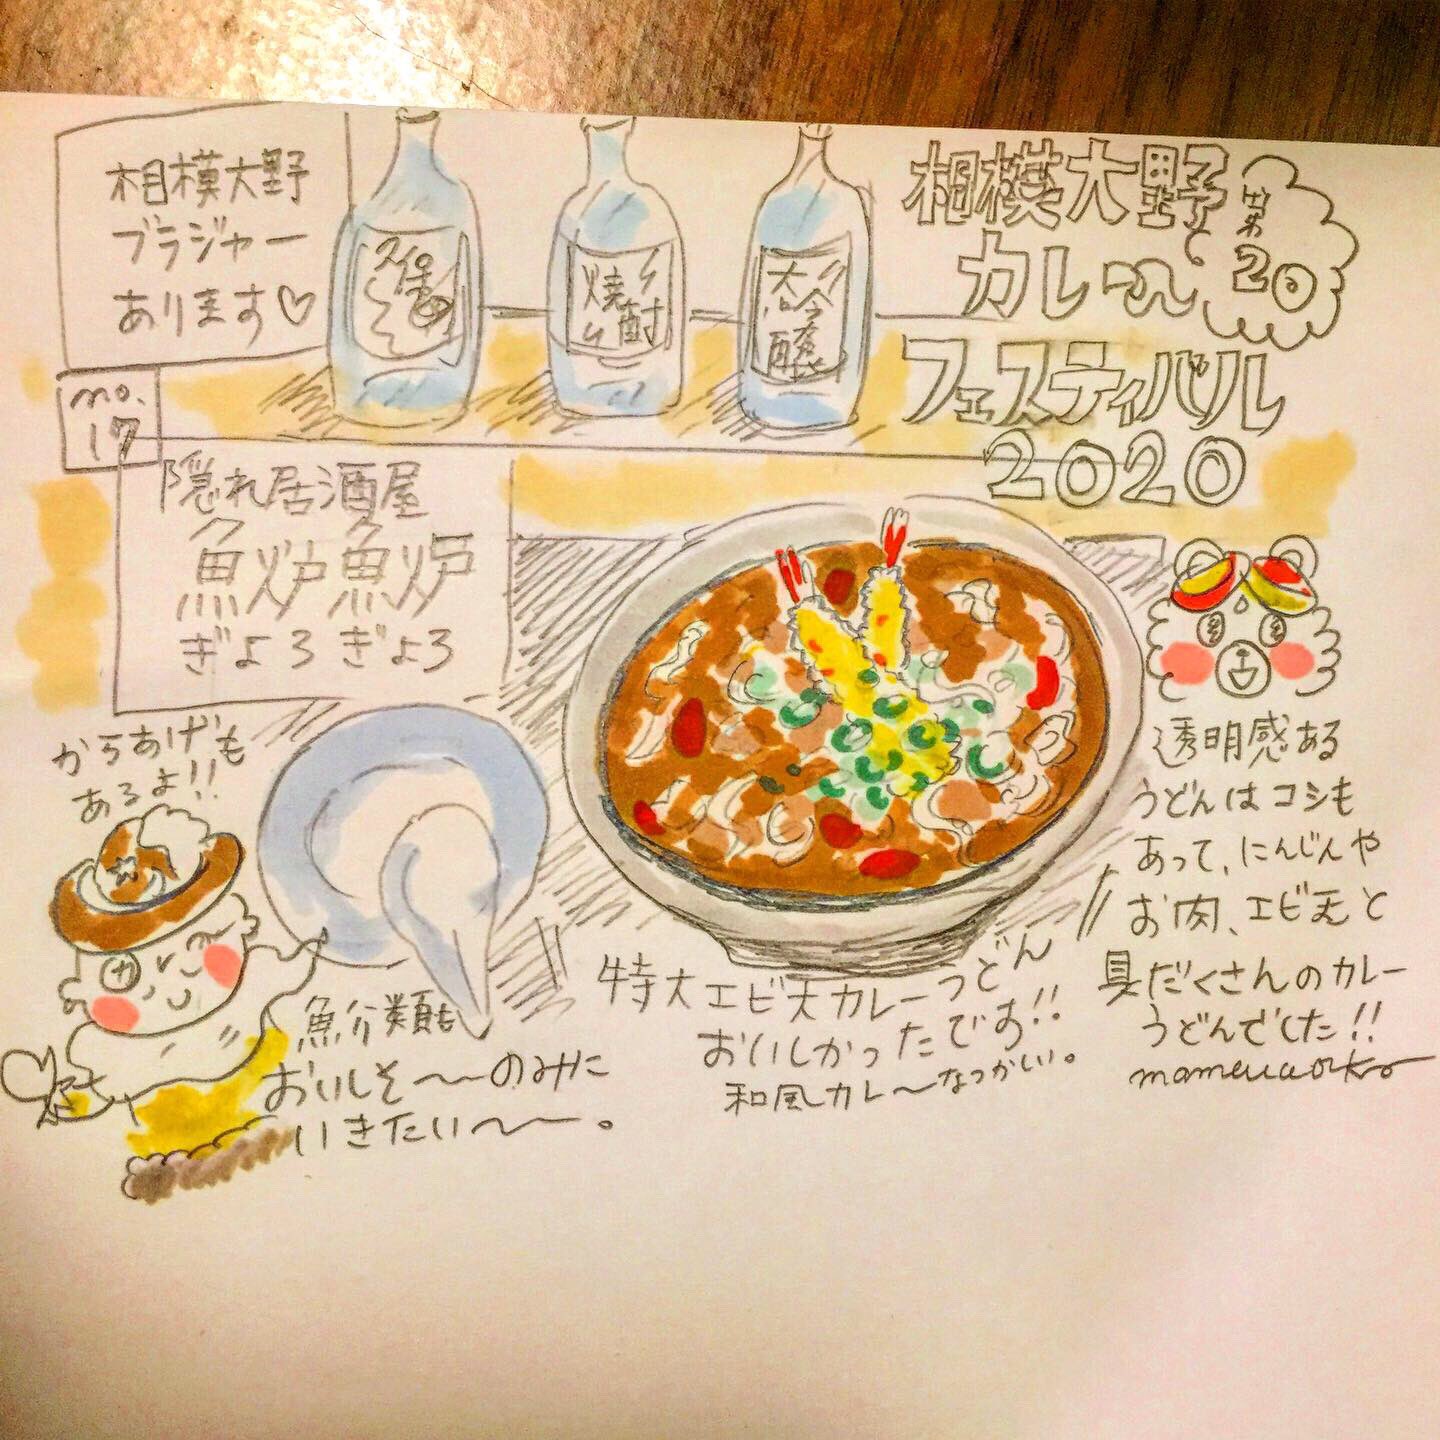 相模大野
ブラジャー
あります♡
久保
焼酎
相模大野
カレー
フェスティバル
2020
第20
no.
17
隠れ居酒屋
魚炉魚炉
ぎょろぎょろ
からあげも
あるよ!!
魚介類も
おいしそ〜〜のみに
いきたい〜〜。
特大エビ天カレーうどん
おいしかったです!!
和風カレ〜なつかしい。
透明感ある
うどんはコシも
あって、にんじんや
お肉、エビ天と
具だくさんのカレー
うどんでした!!